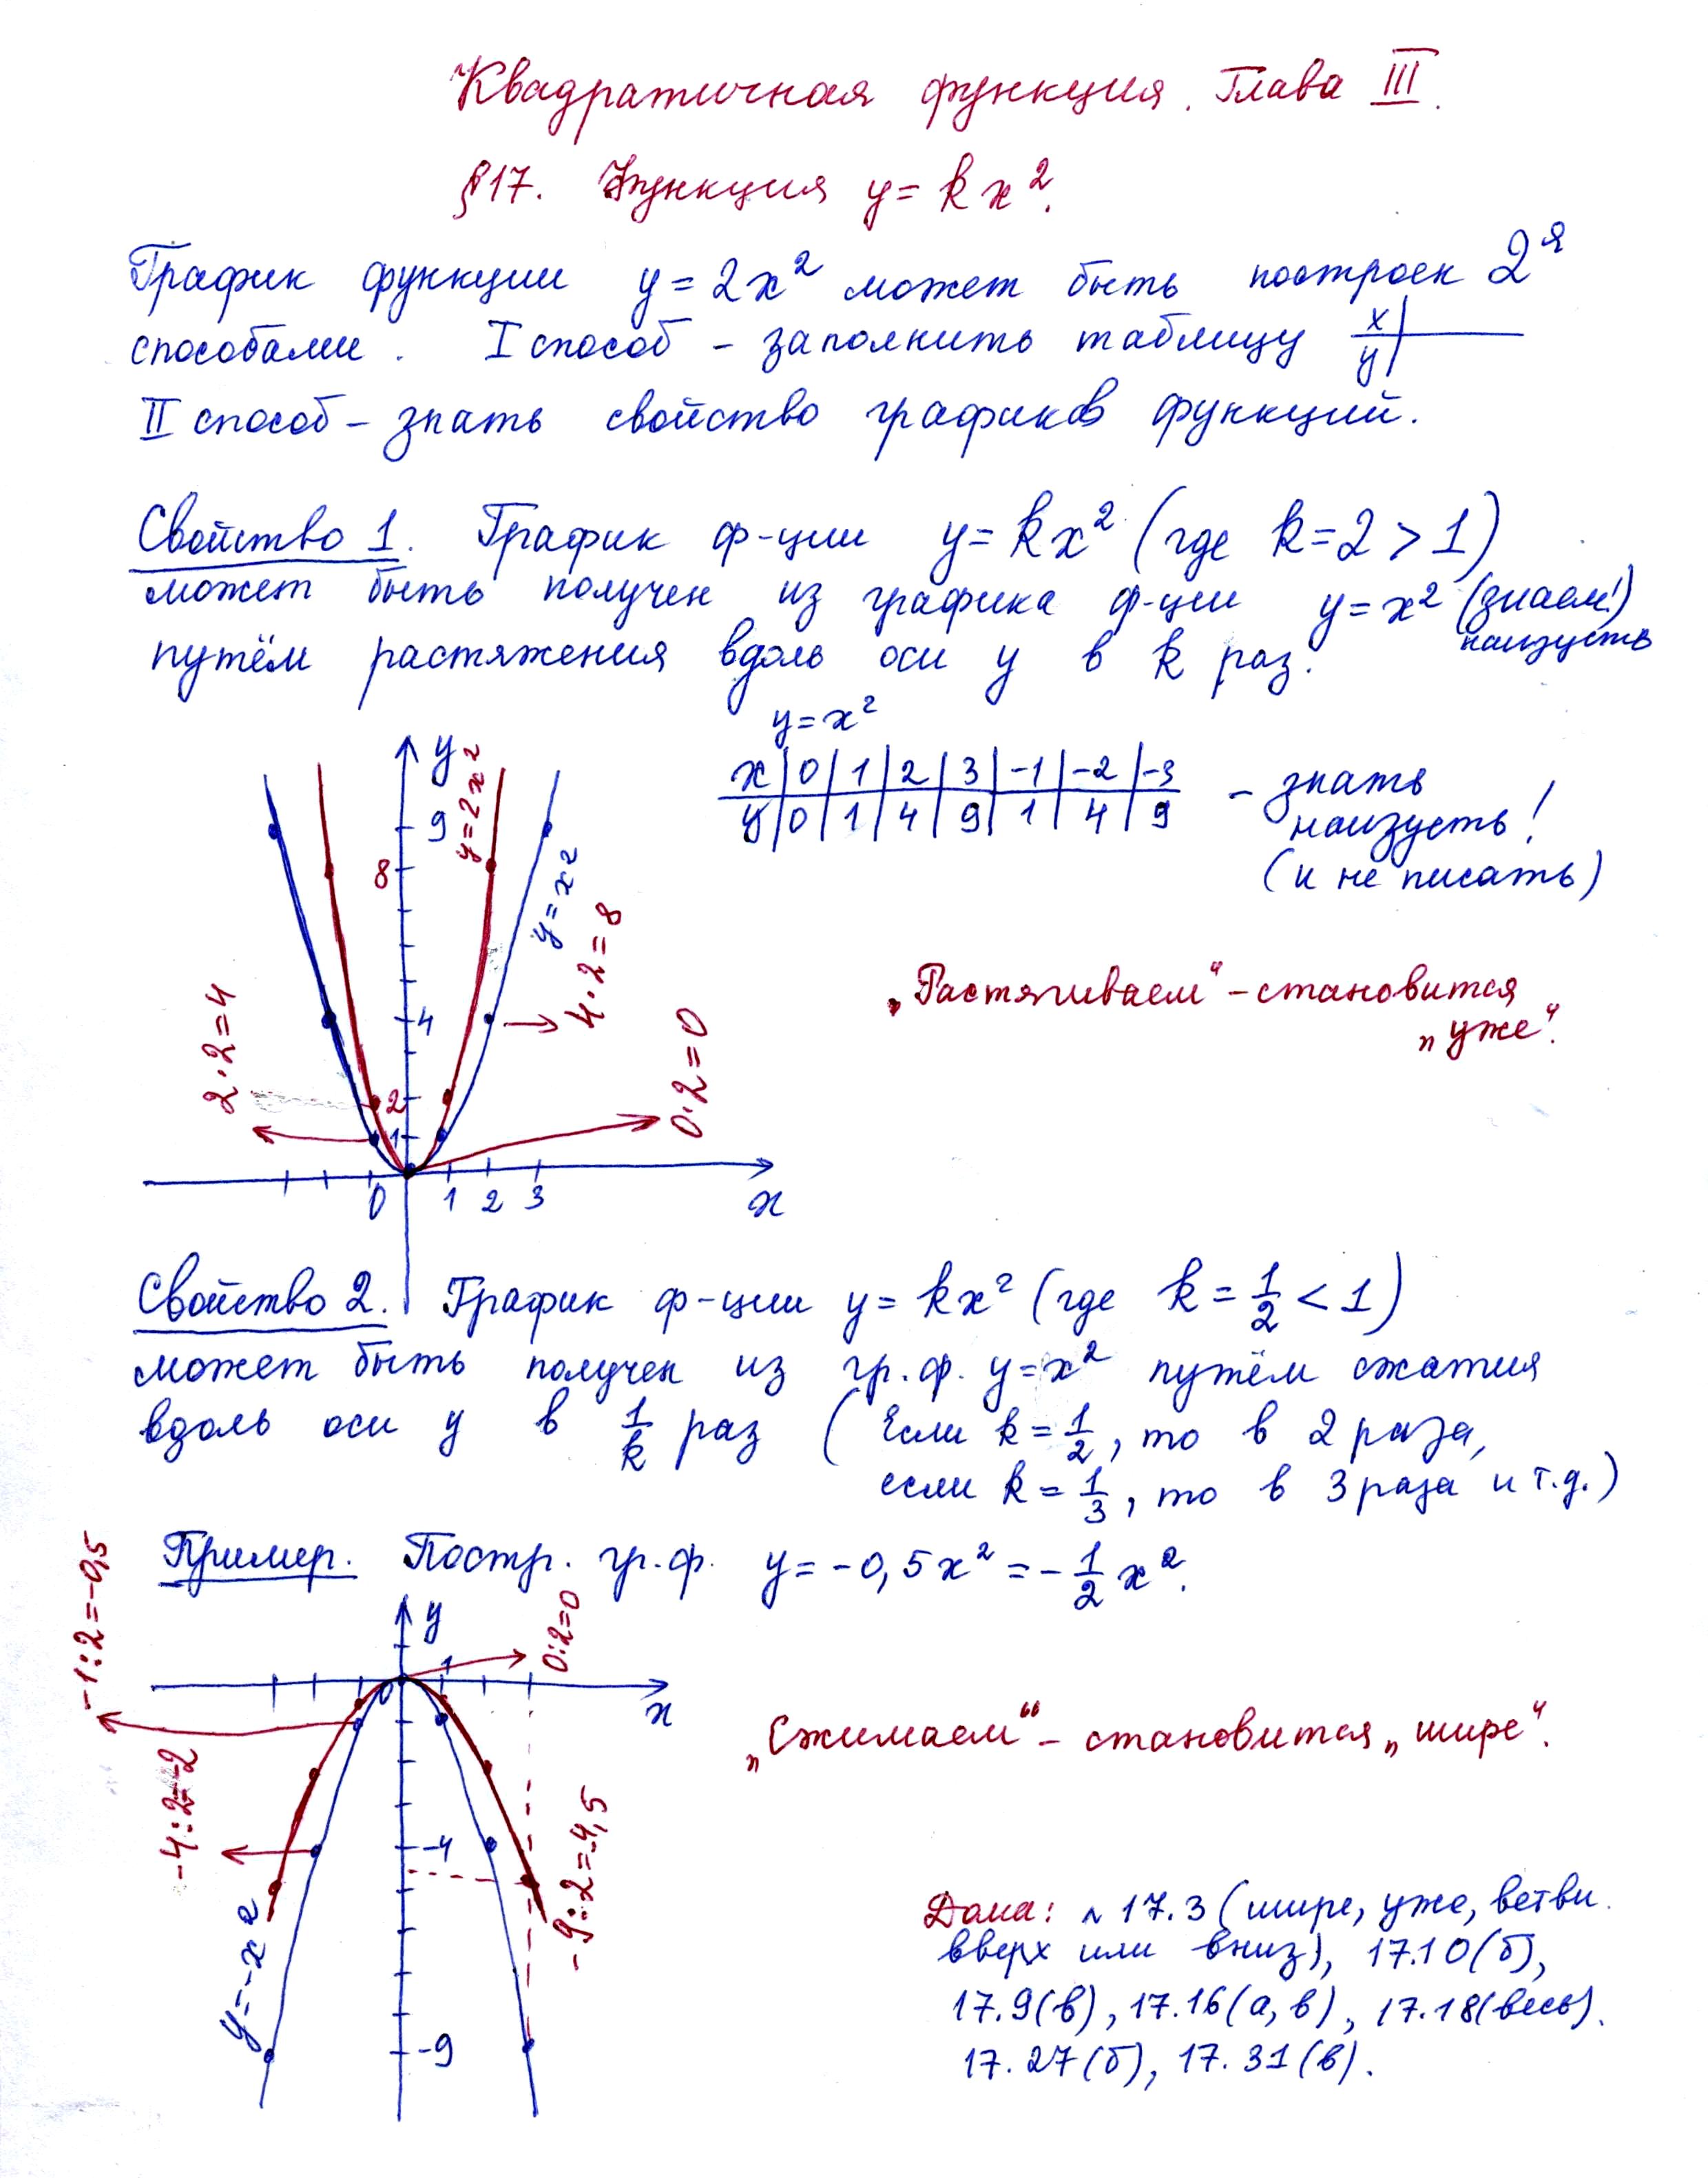 Квадратичная функция. Глава III.
§17. Функция y = kx².
График функции y = 2x² может быть построен 2ᵃ
способами. I способ – заполнить таблицу x
y
II способ – знать свойство графиков функций.
Свойство 1. График ф-ции y = kx² (где k = 2 > 1)
может быть получен из графика ф-ции y = x² (знаем!)
наизусть
путём растяжения вдоль оси y в k раз.
y = x²
x | 0 | 1 | 2 | 3 | -1 | -2 | -3
y | 0 | 1 | 4 | 9 | 1 | 4 | 9
– знать
наизусть!
(и не писать)
y
9
8
4
2
1
0 1 2 3
x
y = 2x²
y = x²
4·2=8
2·2=4
0·2=0
„Растягиваем“ – становится
„уже“.
Свойство 2. График ф-ции y = kx² (где k = 1/2 < 1)
может быть получен из гр. ф. y = x² путём сжатия
вдоль оси y в 1/k раз (Если k = 1/2, то в 2 раза,
если k = 1/3, то в 3 раза и т.д.)
Пример. Постр. гр. ф. y = -0,5x² = -1/2 x².
y
1
0
x
-4
-9
-1:2=-0,5
0:2=0
-4:2=-2
-9:2=-4,5
y=-x²
„Сжимаем“ – становится „шире“.
Дома: ~ 17.3 (шире, уже, ветви
вверх или вниз), 17.10(б),
17.9(в), 17.16(а, в), 17.18(весь).
17.27(б), 17.31(в).